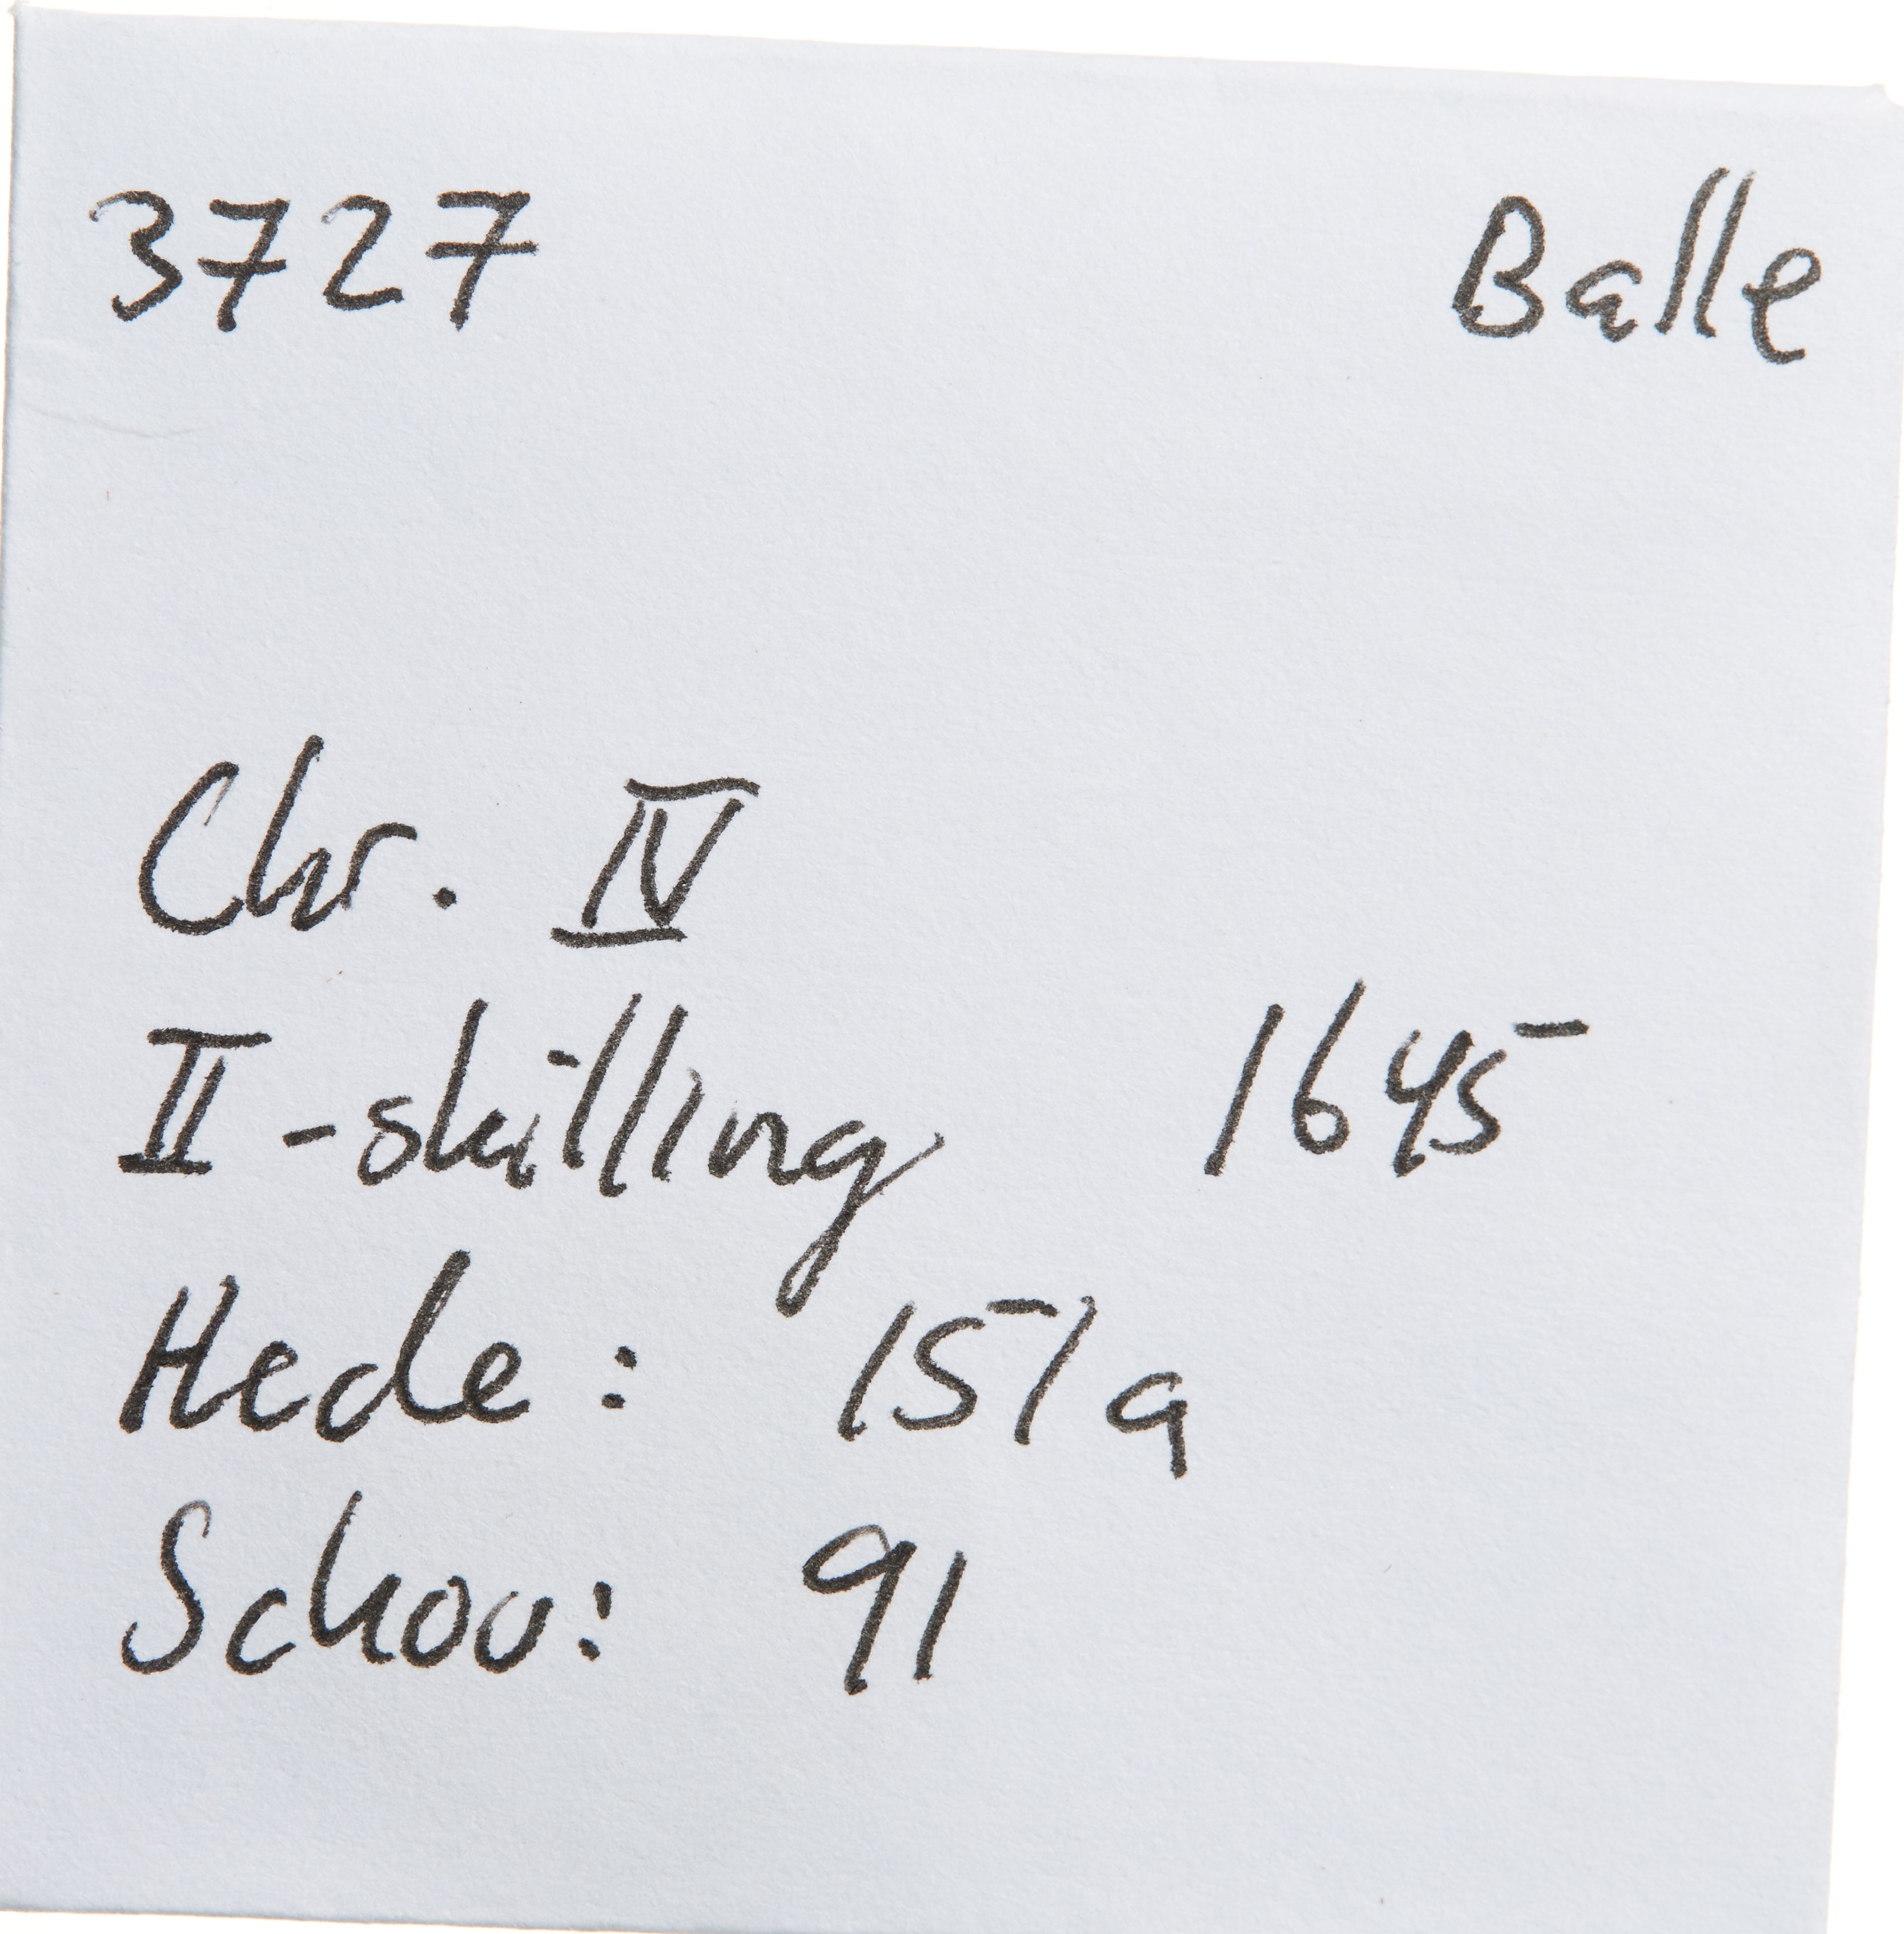 3727 Balle
Chr. IV
II-skilling 1645
Hede: 151a
Schou: 91